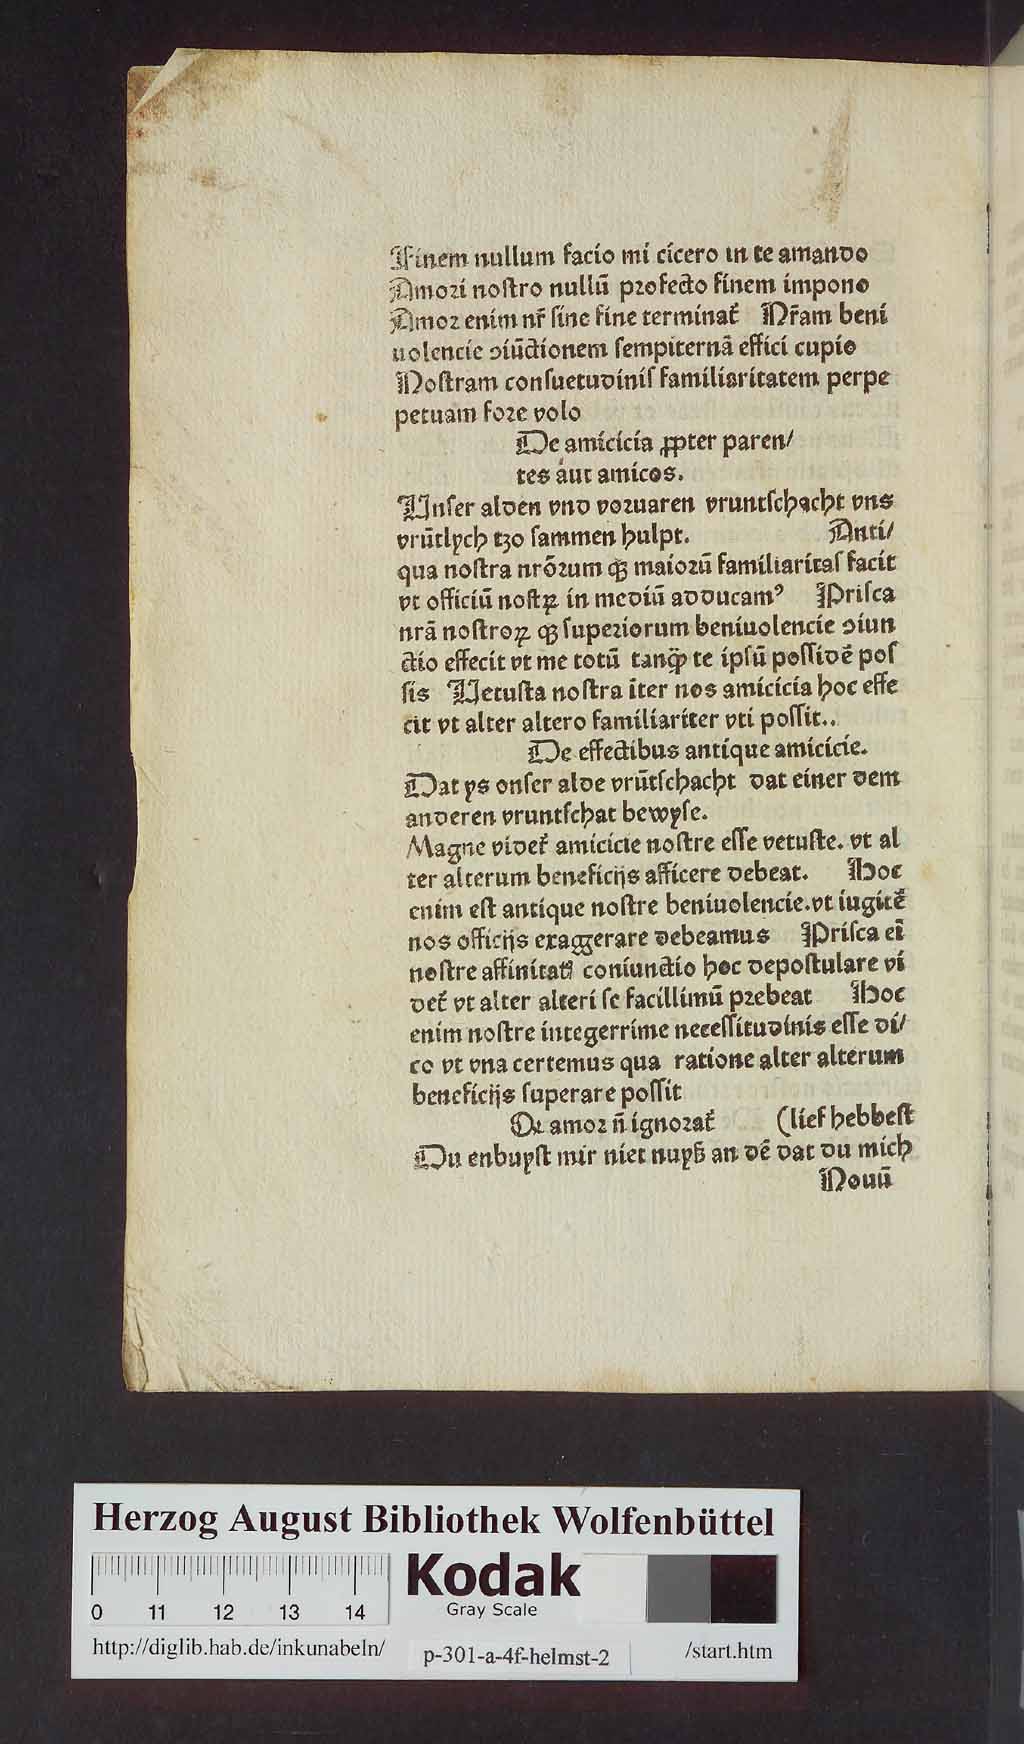 Finem nullum facio mi cicero in te amando
Amori nostro nullū profecto finem impono
Amor enim nr̄ sine fine terminat᷑ Nr̄am beni
uolencie ↄiūctionem sempiternā effici cupio
Nostram consuetudinis familiaritatem perpe
petuam fore volo
De amicicia ꝓpter paren/
tes aut amicos.
Unser alden vnd voruaren vruntschacht vns
vrūtlych tzo sammen hulpt. Anti/
qua nostra nrōrum qꝫ maiorū familiaritas facit
vt officiū nostꝝ in mediū adducamꝰ Prisca
nrā nostroꝝ qꝫ superiorum beniuolencie ↄiun
ctio effecit vt me totū tanqꝫ̄ te ipsū possidē pos
sis Uetusta nostra īter nos amicicia hoc effe
cit vt alter altero familiariter vti possit..
De effectibus antique amicicie.
Dat ys onser alde vrūtschacht dat einer dem
anderen vruntschat bewyse.
Magne videt᷑ amicicie nostre esse vetuste. vt al
ter alterum beneficijs afficere debeat. Hoc
enim est antique nostre beniuolencie. vt iugitē
nos officijs exaggerare debeamus Prisca eī
nostre affinitatꝭ coniunctio hoc depostulare vi
det᷑ vt alter alteri se facillimū prebeat Hoc
enim nostre integerrime necessitudinis esse di/
co vt vna certemus qua ratione alter alterum
beneficijs superare possit
Qꝛ amor n̄ ignorat᷑ (lief hebbest
Du enbuyst mir niet nuyß an dē dat du mich
Nouū
Herzog August Bibliothek Wolfenbüttel
Kodak
Gray Scale
0 11 12 13 14
http://diglib.hab.de/inkunabeln/ p-301-a-4f-helmst-2 /start.htm